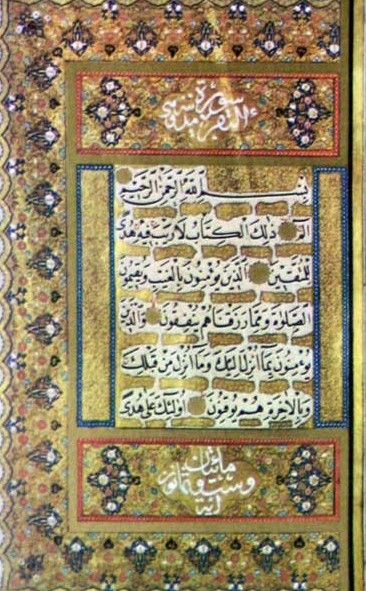 سورة
البقرة مدنية
بسم الله الرحمن الرحيم
الم ذلك الكتاب لا ريب فيه هدى
للمتقين الذين يؤمنون بالغيب ويقيمون
الصلوة ومما رزقناهم ينفقون والذين
يؤمنون بما انزل اليك وما انزل من قبلك
وبالاخرة هم يوقنون اولئك على هدى
مايتان
وست وثمانون
آية